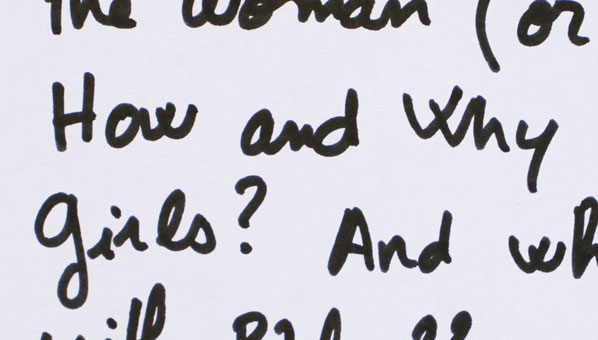 the woman (or
How and Why
Girls? And wh
will